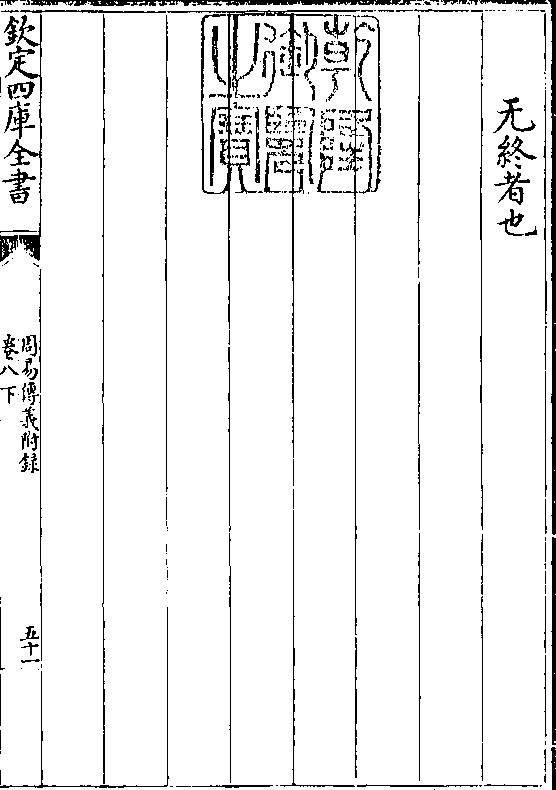 无終者也
乾隆御覽之寶
欽定四庫全書
周易傳義附録
卷八下
五十一